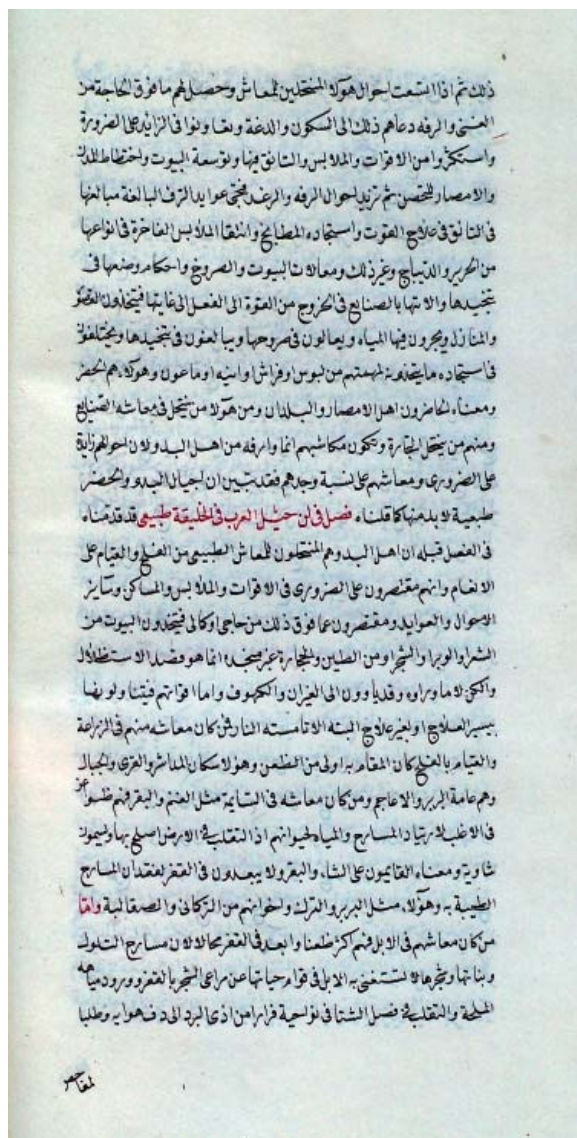 ذلك ثم اذا اتسعت احوال هولا المنتحلين للمعاش وحصل لهم ما فوق الحاجة من
الغنى والرفه دعاهم ذلك الى السكون والدعة وتعاونوا فى الزايد على الضرورة
واستكثروا من الاقوات والملابس والتانق فيها وتوسعة البيوت واختطاط المدن
والامصار للتحصن ثم تزيد احوال الرفه والرغد فتجى عوايد الترف البالغة مبالغها
فى التانق فى علاج القوت واستجاده المطابخ وانتقا الملابس الفاخرة فى انواعها
من الحرير والديباج وغير ذلك ومعالات البيوت والصروح واحكام وضعها فى
تنجيدها والانتها بالصنايع فى الخروج من القوة الى الفعل الى غايتها فيتخذون القصور
والمنازل ويجرون فيها المياه ويعالون فى صروحها ويبالغون فى تنجيدها ويختلفون
فى استجاده ما يتخذونه لمهمتهم من لبوس او فراش او انيه او ماعون وهولاء هم الحضر
ومعناه الحاضرون اهل الامصار والبلدان ومن هولا من ينتحل فى معاشه الصنايع
ومنهم من ينتحل التجارة وتكون مكاسبهم انما وارفه من اهل البدو لان احوالهم زايدة
على الضرورى ومعاشهم على نسبة وجدهم فقد تبين ان اجيال البدو والحضر
طبعية لابد منها كما قلناه فصل فى ان جيل العرب فى الخليقة طبيعى قد قدمناه
فى الفصل قبله ان اهل البدو هم المنتحلون للمعاش الطبيعى من الفلح والقيام على
الانعام وانهم مقتصرون على الضرورى فى الاقوات والملابس والمساكن وساير
الاحوال والعوايد ومقتصرون عما فوق ذلك من حاجى او كمالى فيتخذون البيوت من
الشعر والوبر او الشجر او من الطين والحجارة غير منجده انما هو قصد الاستظلال
والكن لا ما وراه وقد ياوون الى الغيران والكهوف واما اقواتهم فيتناولونها
بيسير العلاج او بغير علاج البته الا ما مسته النار فمن كان معاشه منهم فى الزراعة
والقيام بالفلح كان المقام به اولى من الظعن وهولا سكان المداشر والقرى والجبال
وهم عامة البربر والاعاجم ومن كان معاشه فى السايمة مثل الغنم والبقر فهم ظعن
فى الاغلب لارتياد المسارح والمياه لحيوانهم اذ التقلب فى الارض اصلح بها ويسمون
شاوية ومعناه القايمون على الشاء والبقر ولا يبعدون فى القفر لفقدان المسارح
الطيبة به وهولاء مثل البربر والترك واخوانهم من التركمان والصقالبة واما
من كان معاشهم فى الابل فهم اكثر ظعنا وابعد فى القفر مجالا لان مسارح التلول
ونباتها وشجرها لا تستغنى به الابل فى قوام حياتها عن مراعى الشجر بالقفر وورود مياهه
الملحة والتقلب فى فصل الشتا فى نواحيه فرارا من اذى البرد الى دف هوايه وطلبا
لمفاحص